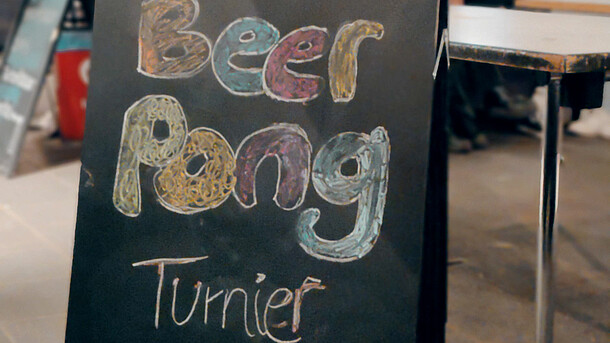 Beer
Pong
Turnier